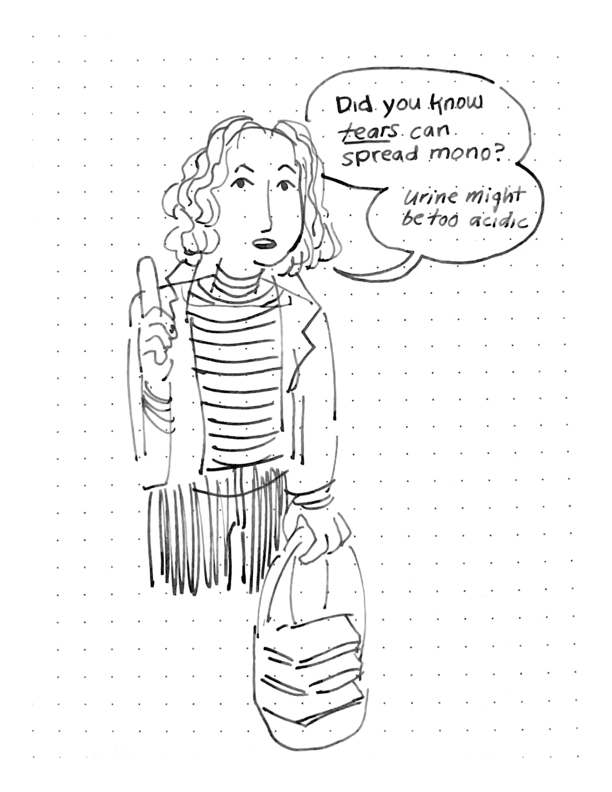 Did you know
tears can
spread mono?
Urine might
be too acidic